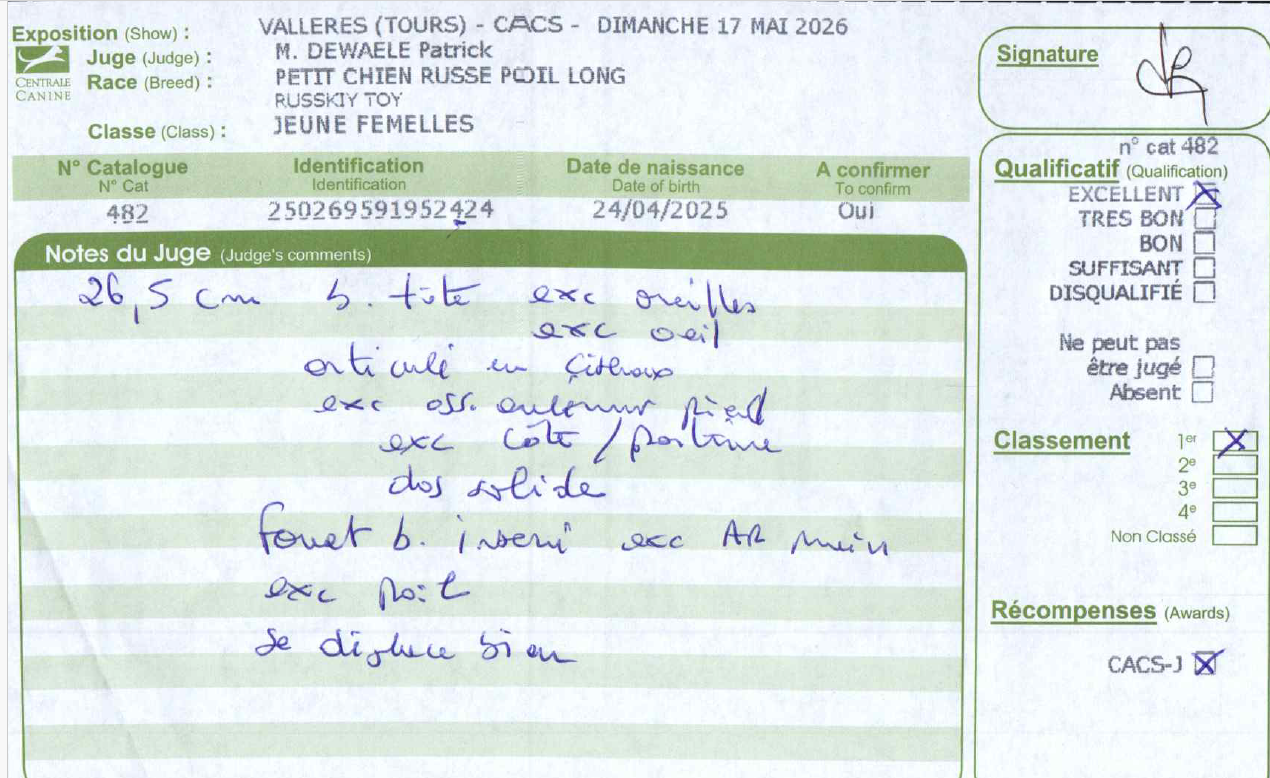 Exposition (Show) : VALLERES (TOURS) - CACS - DIMANCHE 17 MAI 2026
Juge (Judge) : M. DEWAELE Patrick
Race (Breed) : PETIT CHIEN RUSSE POIL LONG
RUSSKIY TOY
CENTRALE
CANINE
Classe (Class) : JEUNE FEMELLES
N° Catalogue Identification Date de naissance A confirmer
N° Cat Identification Date of birth To confirm
482 250269591952424 24/04/2025 Oui
Notes du Juge (Judge's comments)
26,5 cm b. tête exc oreilles
exc oeil
articulé en ciseaux
exc oss. pied
exc côte / poitrine
dos solide
fouet b. inséré exc AR main
exc poil
se déplace bien
Signature
n° cat 482
Qualificatif (Qualification)
EXCELLENT
TRES BON
BON
SUFFISANT
DISQUALIFIÉ
Ne peut pas
être jugé
Absent
Classement 1er
2e
3e
4e
Non Classé
Récompenses (Awards)
CACS-J